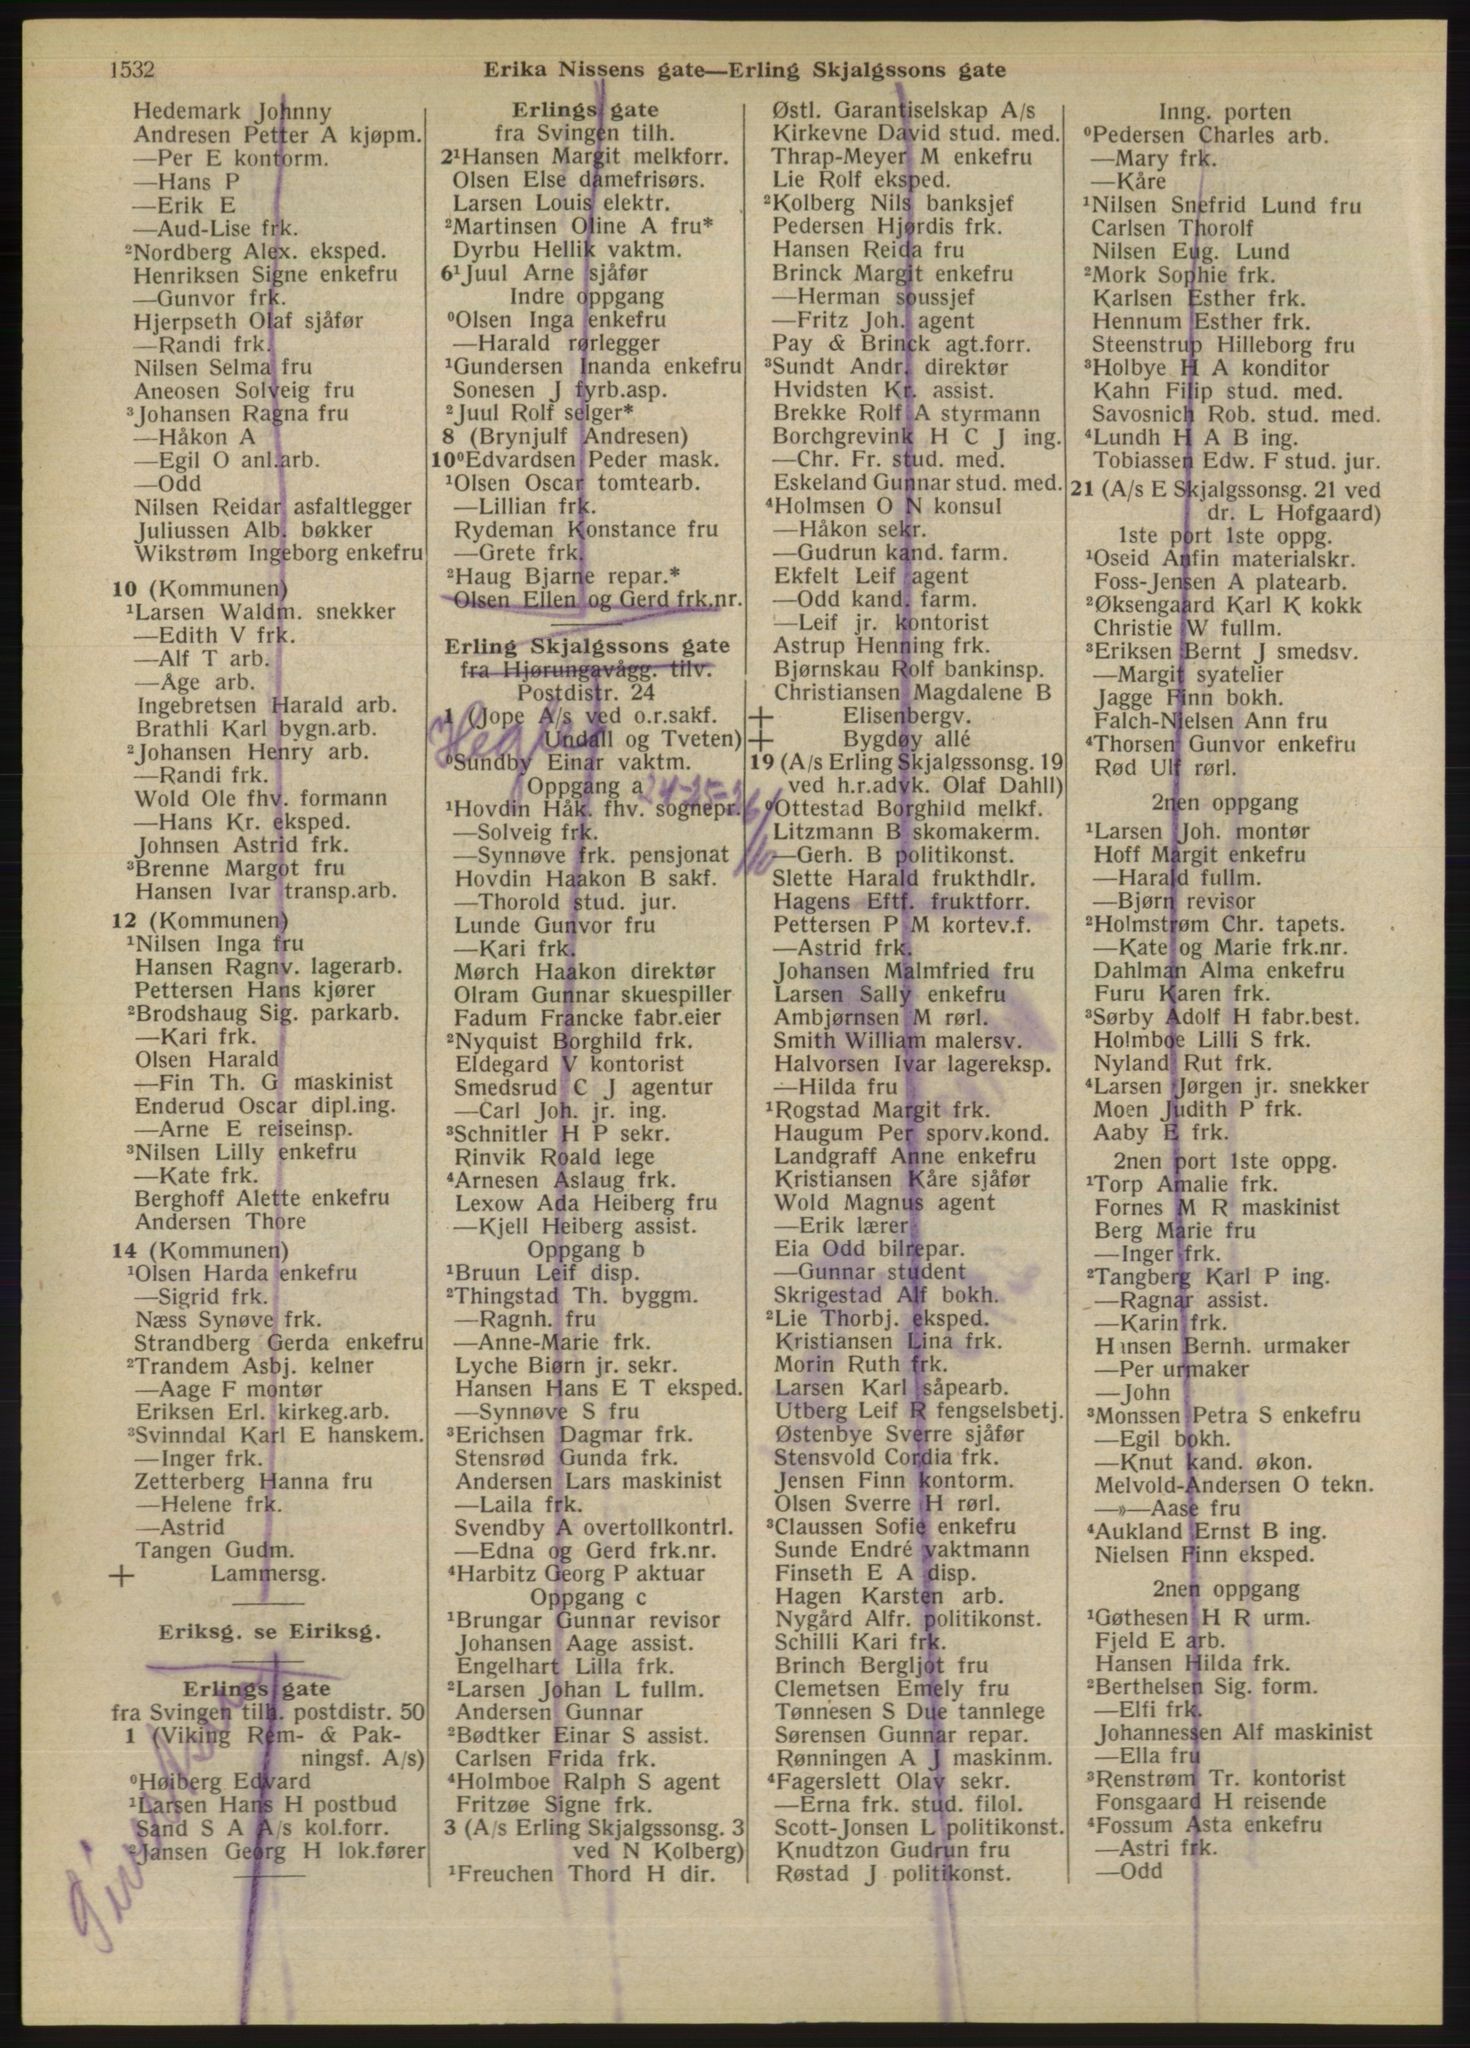 1532
Erika Nissens gate—Erling Skjalgssons gate
Hedemark Johnny
Andresen Petter A kjøpm.
—Per E kontorm.
—Hans P
—Erik E
—Aud-Lise frk.
²Nordberg Alex. eksped.
Henriksen Signe enkefru
—Gunvor frk.
Hjerpseth Olaf sjåfør
—Randi frk.
Nilsen Selma fru
Aneosen Solveig fru
³Johansen Ragna fru
—Håkon A
—Egil O anl.arb.
—Odd
Nilsen Reidar asfaltlegger
Juliussen Alb. bøkker
Wikstrøm Ingeborg enkefru
10 (Kommunen)
¹Larsen Waldm. snekker
—Edith V frk.
—Alf T arb.
—Åge arb.
Ingebretsen Harald arb.
Brathli Karl bygn.arb.
²Johansen Henry arb.
—Randi frk.
Wold Ole fhv. formann
—Hans Kr. eksped.
Johnsen Astrid frk.
³Brenne Margot fru
Hansen Ivar transp.arb.
12 (Kommunen)
¹Nilsen Inga fru
Hansen Ragnv. lagerarb.
Pettersen Hans kjører
²Brodshaug Sig. parkarb.
—Kari frk.
Olsen Harald
—Fin Th. G maskinist
Enderud Oscar dipl.ing.
—Arne E reiseinsp.
³Nilsen Lilly enkefru
—Kate frk.
Berghoff Alette enkefru
Andersen Thore
14 (Kommunen)
¹Olsen Harda enkefru
—Sigrid frk.
Næss Synøve frk.
Strandberg Gerda enkefru
²Trandem Asbj. kelner
—Aage F montør
Eriksen Erl. kirkeg.arb.
³Svinndal Karl E hanskem.
—Inger frk.
Zetterberg Hanna fru
—Helene frk.
—Astrid
Tangen Gudm.
+ Lammersg.
Eriksg. se Eiriksg.
Erlings gate
fra Svingen tilh. postdistr. 50
1 (Viking Rem- & Pak-
ningsf. A/s)
⁰Høiberg Edvard
¹Larsen Hans H postbud
Sand S A A/s kol.forr.
²Jansen Georg H lok.fører
Erlings gate
fra Svingen tilh.
2¹Hansen Margit melkforr.
Olsen Else damefrisørs.
Larsen Louis elektr.
²Martinsen Oline A fru*
Dyrbu Hellik vaktm.
6¹Juul Arne sjåfør
Indre oppgang
⁰Olsen Inga enkefru
—Harald rørlegger
¹Gundersen Inanda enkefru
Sonesen J fyrb.asp.
²Juul Rolf selger*
8 (Brynjulf Andresen)
10⁰Edvardsen Peder mask.
¹Olsen Oscar tomtearb.
—Lillian frk.
Rydeman Konstance fru
—Grete frk.
²Haug Bjarne repar.*
Olsen Ellen og Gerd frk.nr.
Erling Skjalgssons gate
fra Hjørungavågg. tilv.
Postdistr. 24
1 (Jope A/s ved o.r.sakf.
Undall og Tveten)
⁰Sundby Einar vaktm.
Oppgang a 24-25-26/
¹Hovdin Håk. fhv. sognepr.
—Solveig frk.
—Synnøve frk. pensjonat
Hovdin Haakon B sakf.
—Thorold stud. jur.
Lunde Gunvor fru
—Kari frk.
Mørch Haakon direktør
Olram Gunnar skuespiller
Fadum Francke fabr.eier
²Nyquist Borghild frk.
Eldegard V kontorist
Smedsrud C J agentur
—Carl Joh. jr. ing.
³Schnitler H P sekr.
Rinvik Roald lege
⁴Arnesen Aslaug frk.
Lexow Ada Heiberg fru
—Kjell Heiberg assist.
Oppgang b
¹Bruun Leif disp.
²Thingstad Th. byggm.
—Ragnh. fru
—Anne-Marie frk.
Lyche Biørn jr. sekr.
Hansen Hans E T eksped.
—Synnøve S fru
³Erichsen Dagmar frk.
Stensrød Gunda frk.
Andersen Lars maskinist
—Laila frk.
Svendby A overtollkontrl.
—Edna og Gerd frk.nr.
⁴Harbitz Georg P aktuar
Oppgang c
¹Brungar Gunnar revisor
Johansen Aage assist.
Engelhart Lilla frk.
²Larsen Johan L fullm.
Andersen Gunnar
²Bødtker Einar S assist.
Carlsen Frida frk.
⁴Holmboe Ralph S agent
Fritzøe Signe frk.
3 (A/s Erling Skjalgssonsg. 3
ved N Kolberg)
¹Freuchen Thord H dir.
Østl. Garantiselskap A/s
Kirkevne David stud. med.
Thrap-Meyer M enkefru
Lie Rolf eksped.
²Kolberg Nils banksjef
Pedersen Hjørdis frk.
Hansen Reida fru
Brinck Margit enkefru
—Herman soussjef
—Fritz Joh. agent
Pay & Brinck agt.forr.
³Sundt Andr. direktør
Hvidsten Kr. assist.
Brekke Rolf A styrmann
Borchgrevink H C J ing.
—Chr. Fr. stud. med.
Eskeland Gunnar stud. med.
⁴Holmsen O N konsul
—Håkon sekr.
—Gudrun kand. farm.
Ekfelt Leif agent
—Odd kand. farm.
—Leif jr. kontorist
Astrup Henning frk.
Bjørnskau Rolf bankinsp.
Christiansen Magdalene B
+ Elisenbergv.
+ Bygdøy allé
19 (A/s Erling Skjalgssonsg. 19
ved h.r.advk. Olaf Dahll)
⁰Ottestad Borghild melkf.
Litzmann B skomakerm.
—Gerh. B politikonst.
Slette Harald frukthdlr.
Hagens Eftf. fruktforr.
Pettersen P M kortev.f.
—Astrid frk.
Johansen Malmfried fru
Larsen Sally enkefru
Ambjørnsen M rørl.
Smith William malersv.
Halvorsen Ivar lagereksp.
—Hilda fru
¹Rogstad Margit frk.
Haugum Per sporv.kond.
Landgraff Anne enkefru
Kristiansen Kåre sjåfør
Wold Magnus agent
—Erik lærer
Eia Odd bilrepar.
—Gunnar student
Skrigestad Alf bokh.
²Lie Thorbj. eksped.
Kristiansen Lina frk.
Morin Ruth frk.
Larsen Karl såpearb.
Utberg Leif R fengselsbetj.
Østenbye Sverre sjåfør
Stensvold Cordia frk.
Jensen Finn kontorm.
Olsen Sverre H rørl.
³Claussen Sofie enkefru
Sunde Endré vaktmann
Finseth E A disp.
Hagen Karsten arb.
Nygård Alfr. politikonst.
Schilli Kari frk.
Brinch Bergljot fru
Clemetsen Emely fru
Tønnesen S Due tannlege
Sørensen Gunnar repar.
Rønningen A J maskinm.
⁴Fagerslett Olav sekr.
—Erna frk. stud. filol.
Scott-Jonsen L politikonst.
Knudtzon Gudrun fru
Røstad J politikonst.
Inng. porten
⁰Pedersen Charles arb.
—Mary frk.
—Kåre
¹Nilsen Snefrid Lund fru
Carlsen Thorolf
Nilsen Eug. Lund
²Mork Sophie frk.
Karlsen Esther frk.
Hennum Esther frk.
Steenstrup Hilleborg fru
³Holbye H A konditor
Kahn Filip stud. med.
Savosnich Rob. stud. med.
⁴Lundh H A B ing.
Tobiassen Edw. F stud. jur.
21 (A/s E Skjalgssonsg. 21 ved
dr. L Hofgaard)
1ste port 1ste oppg.
¹Oseid Anfin materialskr.
Foss-Jensen A platearb.
²Øksengaard Karl K kokk
Christie W fullm.
³Eriksen Bernt J smedsv.
—Margit syatelier
Jagge Finn bokh.
Falch-Nielsen Ann fru
⁴Thorsen Gunvor enkefru
Rød Ulf rørl.
2nen oppgang
¹Larsen Joh. montør
Hoff Margit enkefru
—Harald fullm.
—Bjørn revisor
²Holmstrøm Chr. tapets.
—Kate og Marie frk.nr.
Dahlman Alma enkefru
Furu Karen frk.
³Sørby Adolf H fabr.best.
Holmboe Lilli S frk.
Nyland Rut frk.
⁴Larsen Jørgen jr. snekker
Moen Judith P frk.
Aaby E frk.
2nen port 1ste oppg.
¹Torp Amalie frk.
Fornes M R maskinist
Berg Marie fru
—Inger frk.
²Tangberg Karl P ing.
—Ragnar assist.
—Karin frk.
Hansen Bernh. urmaker
—Per urmaker
—John
³Monssen Petra S enkefru
—Egil bokh.
—Knut kand. økon.
Melvold-Andersen O tekn.
—»—Aase fru
⁴Aukland Ernst B ing.
Nielsen Finn eksped.
2nen oppgang
¹Gøthesen H R urm.
Fjeld E arb.
Hansen Hilda frk.
²Berthelsen Sig. form.
—Elfi frk.
Johannessen Alf maskinist
—Ella fru
³Renstrøm Tr. kontorist
Fonsgaard H reisende
⁴Fossum Asta enkefru
—Astri frk.
—Odd